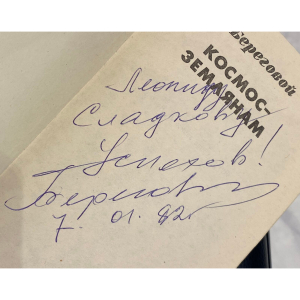 Береговой
КОСМОС-
ЗЕМЛЯНАМ
Леониду
Сладкову
Успехов!
Береговой
7. 01. 82г